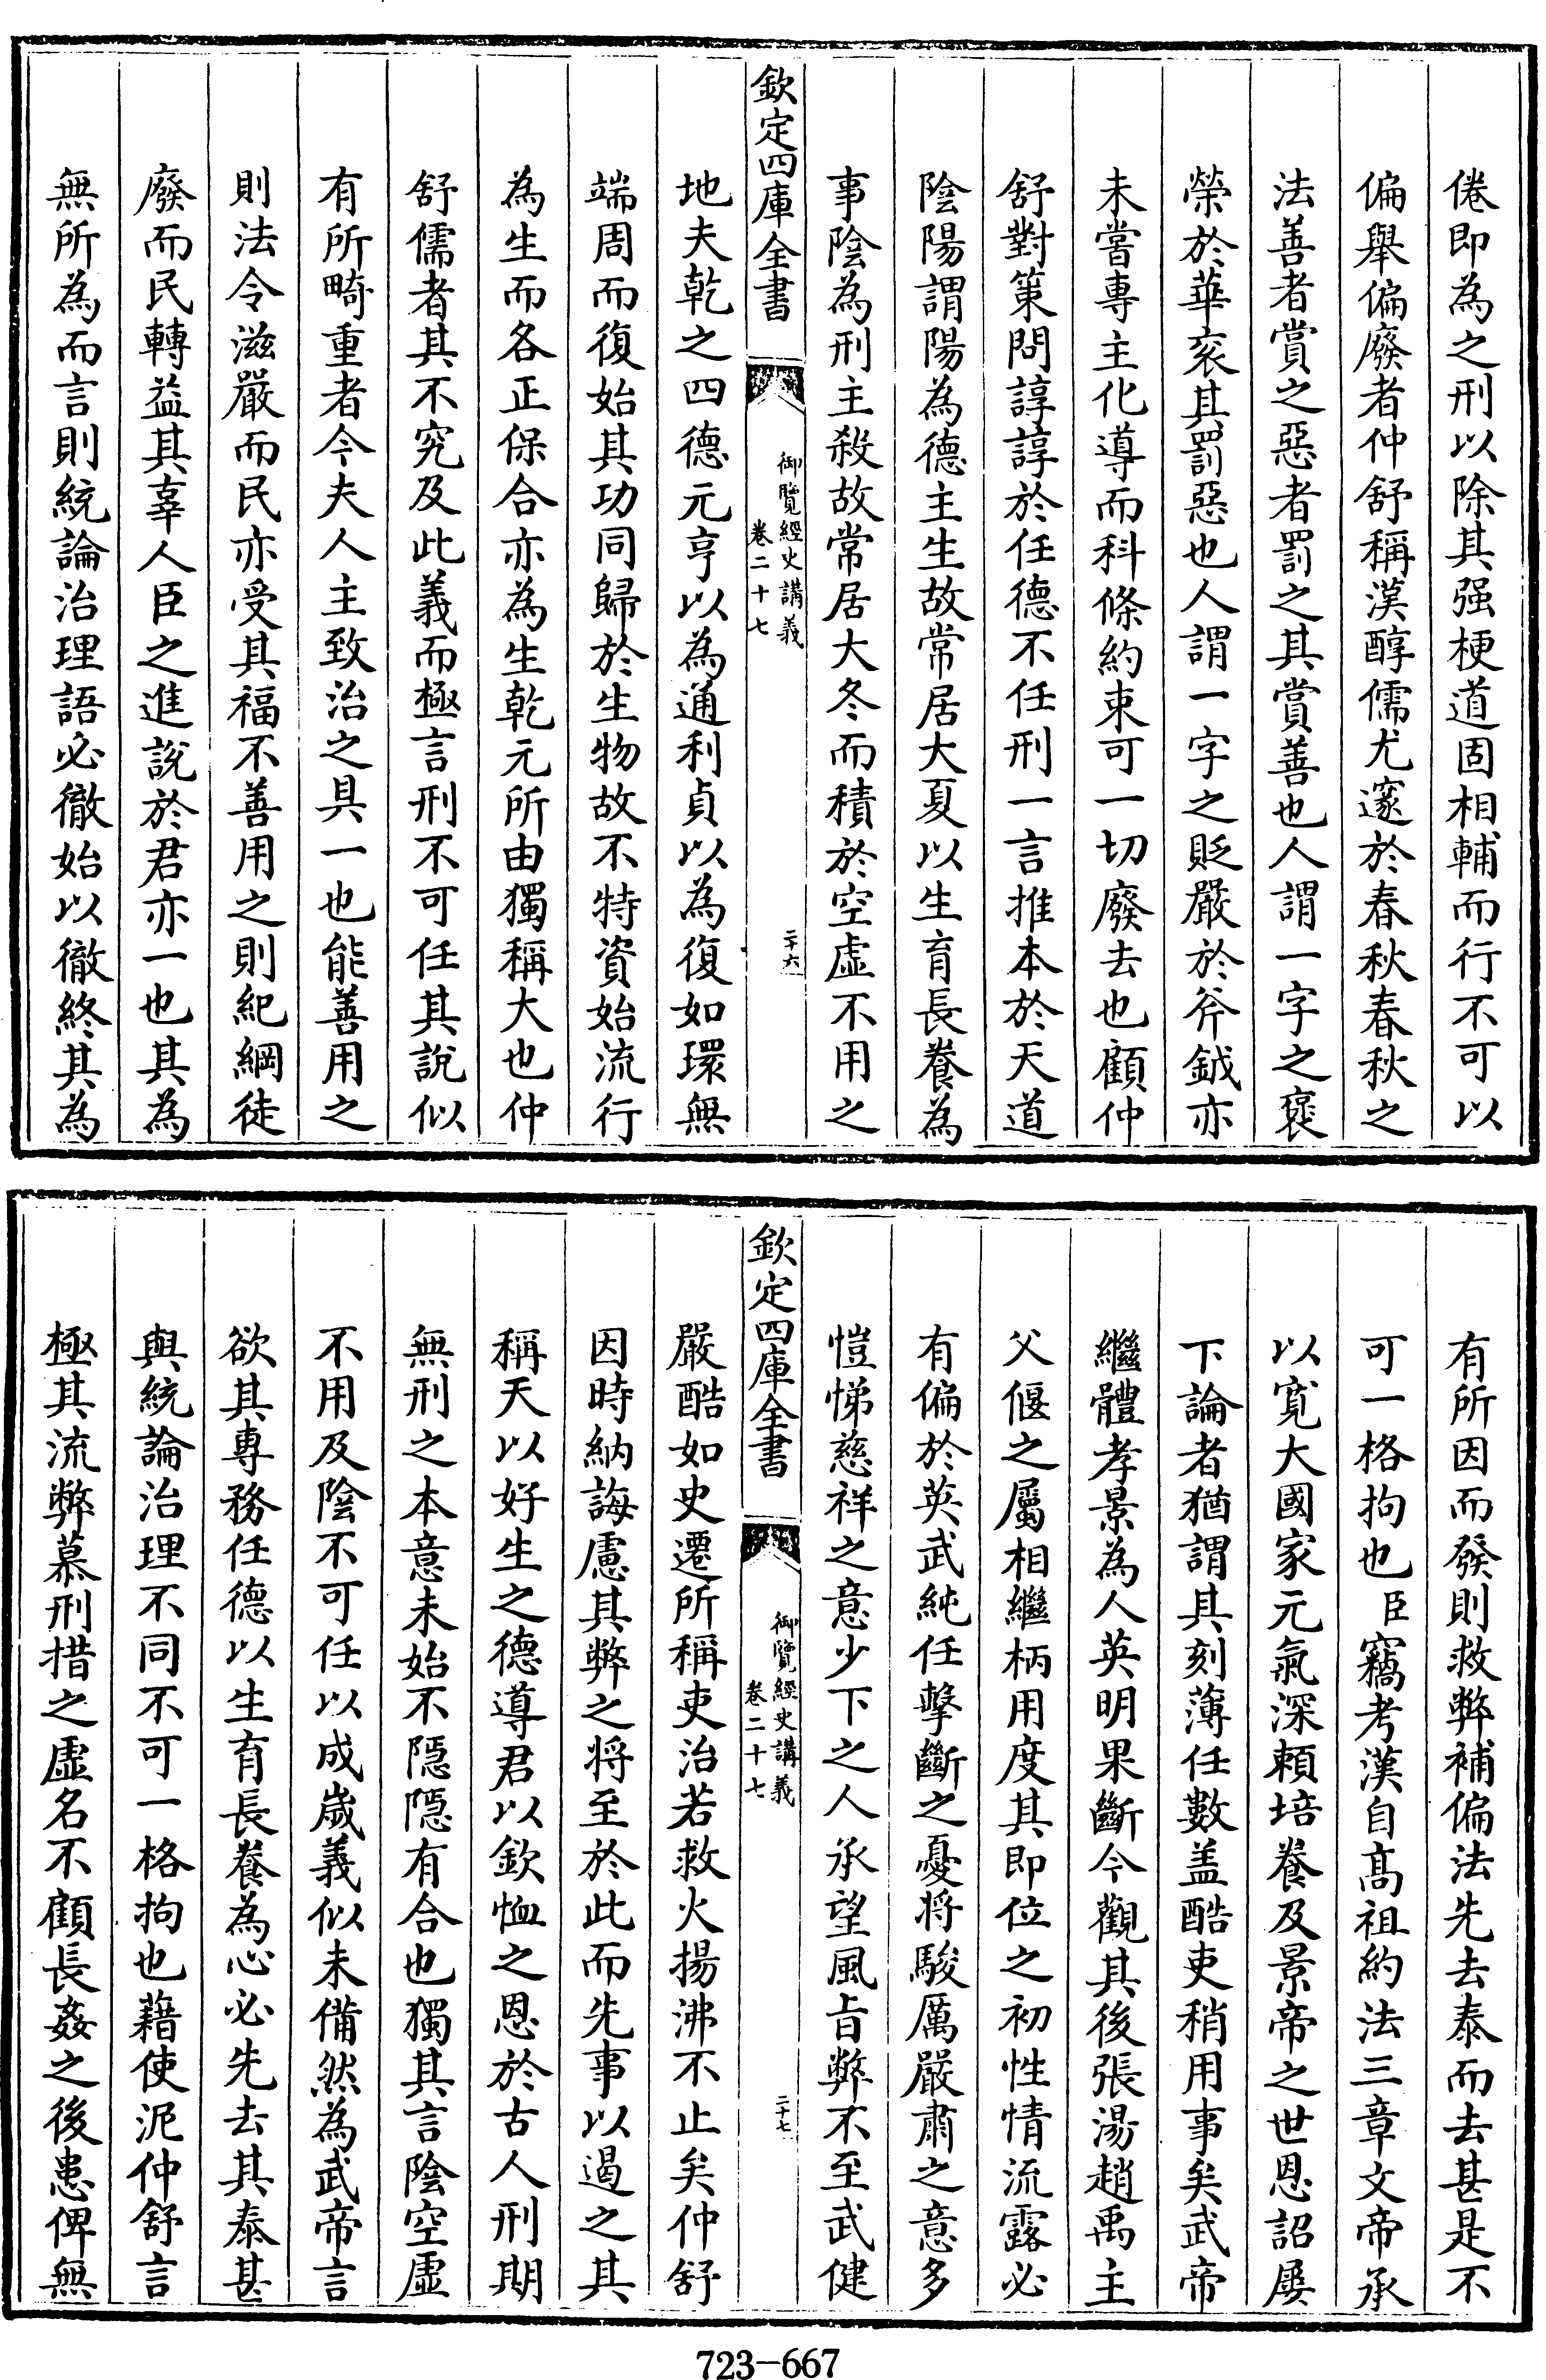 倦即為之刑以除其强梗道固相輔而行不可以
偏舉偏廢者仲舒稱漢醇儒尤邃於春秋春秋之
法善者賞之惡者罰之其賞善也人謂一字之褒
榮於華衮其罰惡也人謂一字之貶嚴於斧鉞亦
未嘗專主化導而科條約束可一切廢去也顧仲
舒對策問諄諄於任德不任刑一言推本於天道
陰陽謂陽為德主生故常居大夏以生育長養為
事陰為刑主殺故常居大冬而積於空虛不用之
欽定四庫全書
御覽經史講義
卷二十七
二十六
地夫乾之四德元亨以為通利貞以為復如環無
端周而復始其功同歸於生物故不特資始流行
為生而各正保合亦為生乾元所由獨稱大也仲
舒儒者其不究及此義而極言刑不可任其說似
有所畸重者今夫人主致治之具一也能善用之
則法令滋嚴而民亦受其福不善用之則紀綱徒
廢而民轉益其辜人臣之進說於君亦一也其為
無所為而言則統論治理語必徹始以徹終其為
有所因而發則救弊補偏法先去泰而去甚是不
可一格拘也臣竊考漢自高祖約法三章文帝承
以寛大國家元氣深賴培養及景帝之世恩詔屢
下論者猶謂其刻薄任數盖酷吏稍用事矣武帝
繼體孝景為人英明果斷今觀其後張湯趙禹主
父偃之屬相繼柄用度其即位之初性情流露必
有偏於英武純任擊斷之憂將駿厲嚴肅之意多
愷悌慈祥之意少下之人承望風旨弊不至武健
欽定四庫全書
御覽經史講義
卷二十七
二十七
嚴酷如史遷所稱吏治若救火揚沸不止矣仲舒
因時納誨慮其弊之將至於此而先事以遏之其
稱天以好生之德導君以欽恤之恩於古人刑期
無刑之本意未始不隱隱有合也獨其言陰空虛
不用及陰不可任以成歲義似未備然為武帝言
欲其專務任德以生育長養為心必先去其泰甚
與統論治理不同不可一格拘也藉使泥仲舒言
極其流弊慕刑措之虛名不顧長姦之後患俾無
723-667